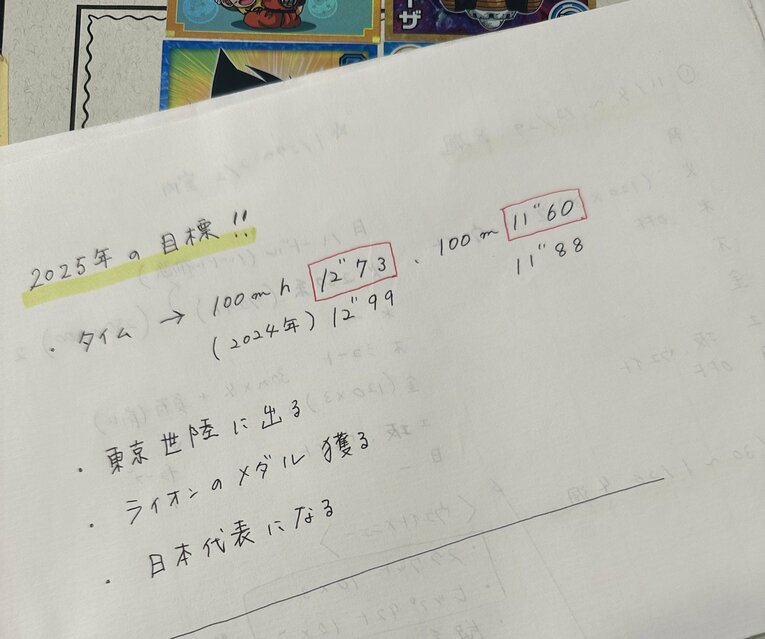 ーザ
2025年の目標!!
・タイム → 100mh 12"73 、100m 11"60
(2024年) 12"99 11"88
・東京世陸に出る
・ライオンのメダル獲る
・日本代表になる